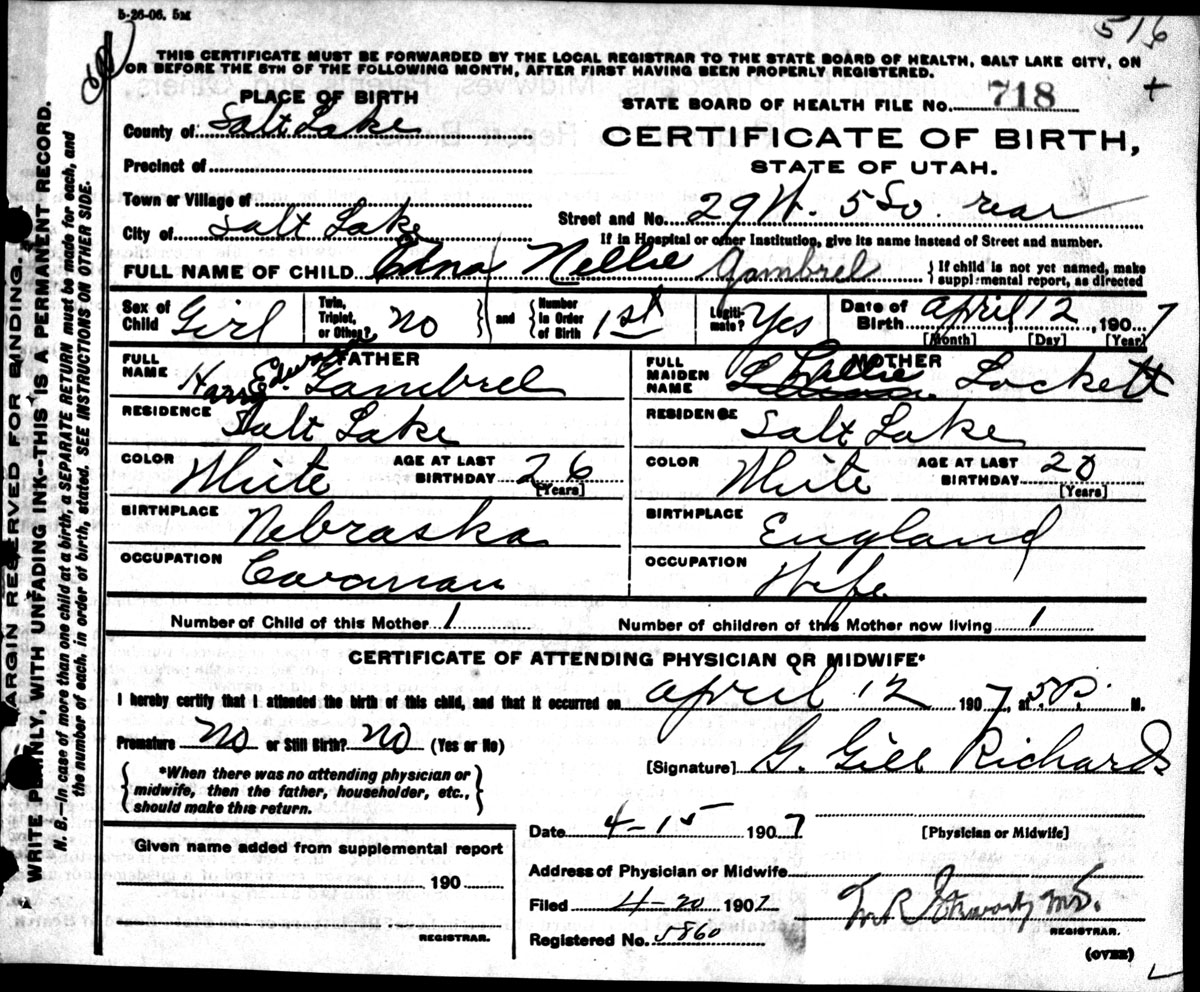 5-26-06. 5M
516
THIS CERTIFICATE MUST BE FORWARDED BY THE LOCAL REGISTRAR TO THE STATE BOARD OF HEALTH, SALT LAKE CITY, ON
OR BEFORE THE 5TH OF THE FOLLOWING MONTH, AFTER FIRST HAVING BEEN PROPERLY REGISTERED.
PLACE OF BIRTH
STATE BOARD OF HEALTH FILE No. 718
County of Salt Lake
CERTIFICATE OF BIRTH,
STATE OF UTAH.
Precinct of
Town or Village of
Street and No. 29 W. 5 So. rear
City of Salt Lake
If in Hospital or other Institution, give its name instead of Street and number.
FULL NAME OF CHILD Edna Nellie Gambrel
{ If child is not yet named, make
supplemental report, as directed
Sex of Child Girl
Twin, Triplet, or Other? No
and
Number in Order of Birth 1st
Legiti-mate? Yes
Date of Birth April 12, 1907
[Month] [Day] [Year]
FATHER
FULL NAME Harry Edward Gambrel
MOTHER
FULL MAIDEN NAME Lallie Lockett
RESIDENCE Salt Lake
RESIDENCE Salt Lake
COLOR White AGE AT LAST BIRTHDAY 26 [Years]
COLOR White AGE AT LAST BIRTHDAY 20 [Years]
BIRTHPLACE Nebraska
BIRTHPLACE England
OCCUPATION Carman
OCCUPATION Wife
Number of Child of this Mother 1
Number of children of this Mother now living 1
CERTIFICATE OF ATTENDING PHYSICIAN OR MIDWIFE*
I hereby certify that I attended the birth of this child, and that it occurred on April 12 1907, at 5. P. M.
Premature No or Still Birth? No (Yes or No)
[Signature] G. Gill Richards
{ *When there was no attending physician or
midwife, then the father, householder, etc.,
should make this return. }
Date 4-15 1907
[Physician or Midwife]
Given name added from supplemental report
190
REGISTRAR.
Address of Physician or Midwife
Filed 4-20 1907
M.D.
REGISTRAR.
Registered No. 5860
(OVER)
MARGIN RESERVED FOR BINDING.
WRITE PLAINLY, WITH UNFADING INK--THIS IS A PERMANENT RECORD.
N. B.—In case of more than one child at a birth, a SEPARATE RETURN must be made for each, and
the number of each, in order of birth, stated. SEE INSTRUCTIONS ON OTHER SIDE.